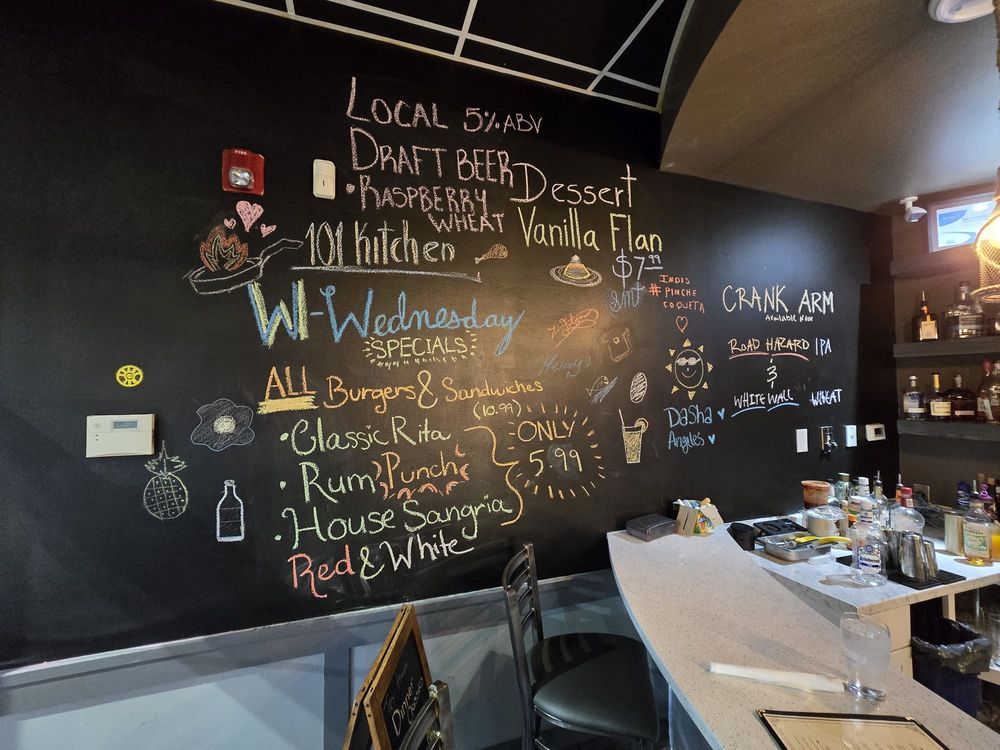 LOCAL 5% ABV
DRAFT BEER
• RASPBERRY
WHEAT
Dessert
Vanilla Flan
$7.99
101 Kitchen
WI-Wednesday
SPECIALS
ALL Burgers & Sandwiches
(10.99)
• Classic Rita
• Rum Punch
• House Sangria
Red & White
ONLY
5.99
INDIS
# PINCHE
COQUETA
Melody
Dasha
Angeles
CRANK ARM
Available Now
ROAD HAZARD IPA
&
WHITE WALL WHEAT
FIRE
Dinner